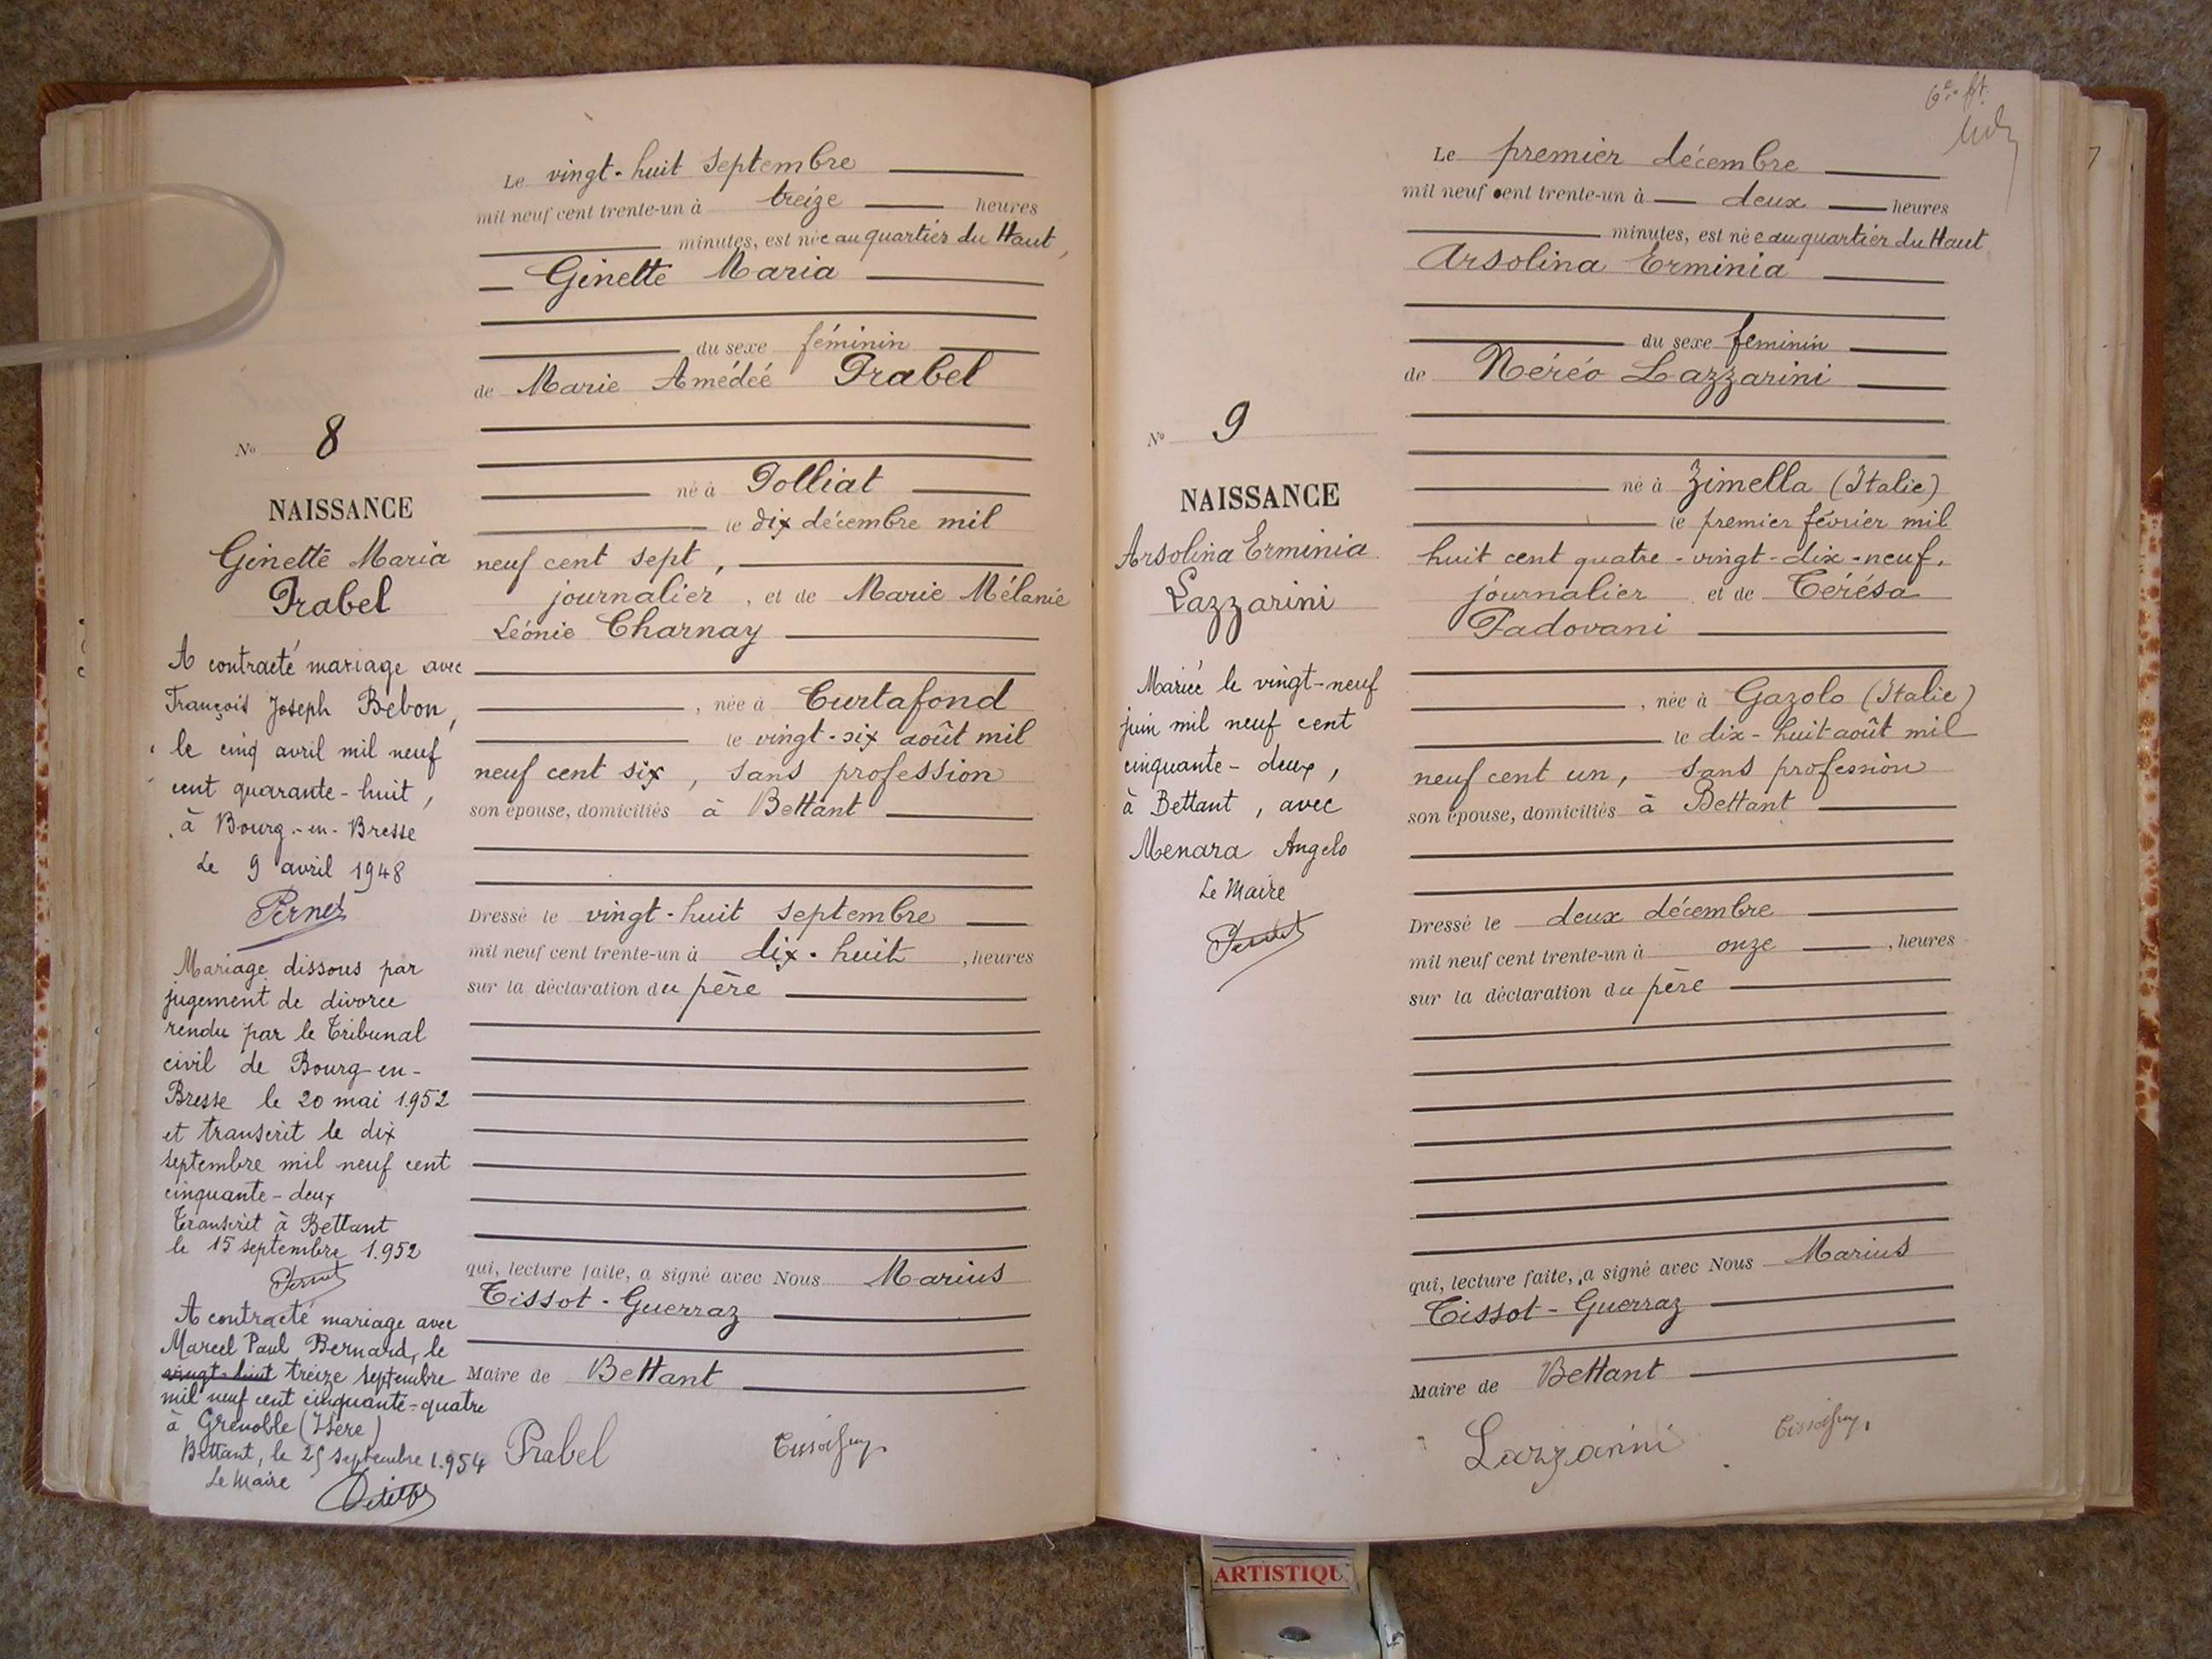 Le vingt-huit septembre
mil neuf cent trente-un à treize heures
minutes, est née au quartier du Haut,
Ginette Maria
du sexe féminin
de Marie Amédéé Prabel
né à Polliat
le dix décembre mil
neuf cent sept,
journalier, et de Marie Mélanie
Léonie Charnay
, née à Curtafond
le vingt-six août mil
neuf cent six, sans profession
son épouse, domiciliés à Bettant
Dressé le vingt-huit septembre
mil neuf cent trente-un à dix-huit, heures
sur la déclaration du père
qui, lecture faite, a signé avec Nous Marius
Tissot-Guerraz
Maire de Bettant
Prabel
No 8
NAISSANCE
Ginette Maria
Prabel
A contracté mariage avec
François Joseph Bebon,
le cinq avril mil neuf
cent quarante-huit,
à Bourg-en-Bresse
Le 9 avril 1948
Pernet
Mariage dissous par
jugement de divorce
rendu par le Tribunal
civil de Bourg-en-
Bresse le 20 mai 1.952
et transcrit le dix
septembre mil neuf cent
cinquante-deux
Transcrit à Bettant
le 15 septembre 1.952
A contracté mariage avec
Marcel Paul Bernard, le
vingt-huit treize septembre
mil neuf cent cinquante-quatre
à Grenoble (Isère)
Bettant, le 25 septembre 1.954
Le Maire
Le premier décembre
mil neuf cent trente-un à deux heures
minutes, est née au quartier du Haut
Arsolina Erminia
du sexe féminin
de Néréo Lazzarini
né à Zimella (Italie)
le premier février mil
huit cent quatre-vingt-dix-neuf.
journalier et de Térésa
Padovani
, née à Gazolo (Italie)
le dix-huit août mil
neuf cent un, sans profession
son épouse, domiciliés à Bettant
Dressé le deux décembre
mil neuf cent trente-un à onze, heures
sur la déclaration du père
qui, lecture faite, a signé avec Nous Marius
Tissot-Guerraz
Maire de Bettant
Lazzarini
No 9
NAISSANCE
Arsolina Erminia
Lazzarini
Mariée le vingt-neuf
juin mil neuf cent
cinquante-deux,
à Bettant, avec
Menara Angelo
Le Maire
7
ARTISTIQU